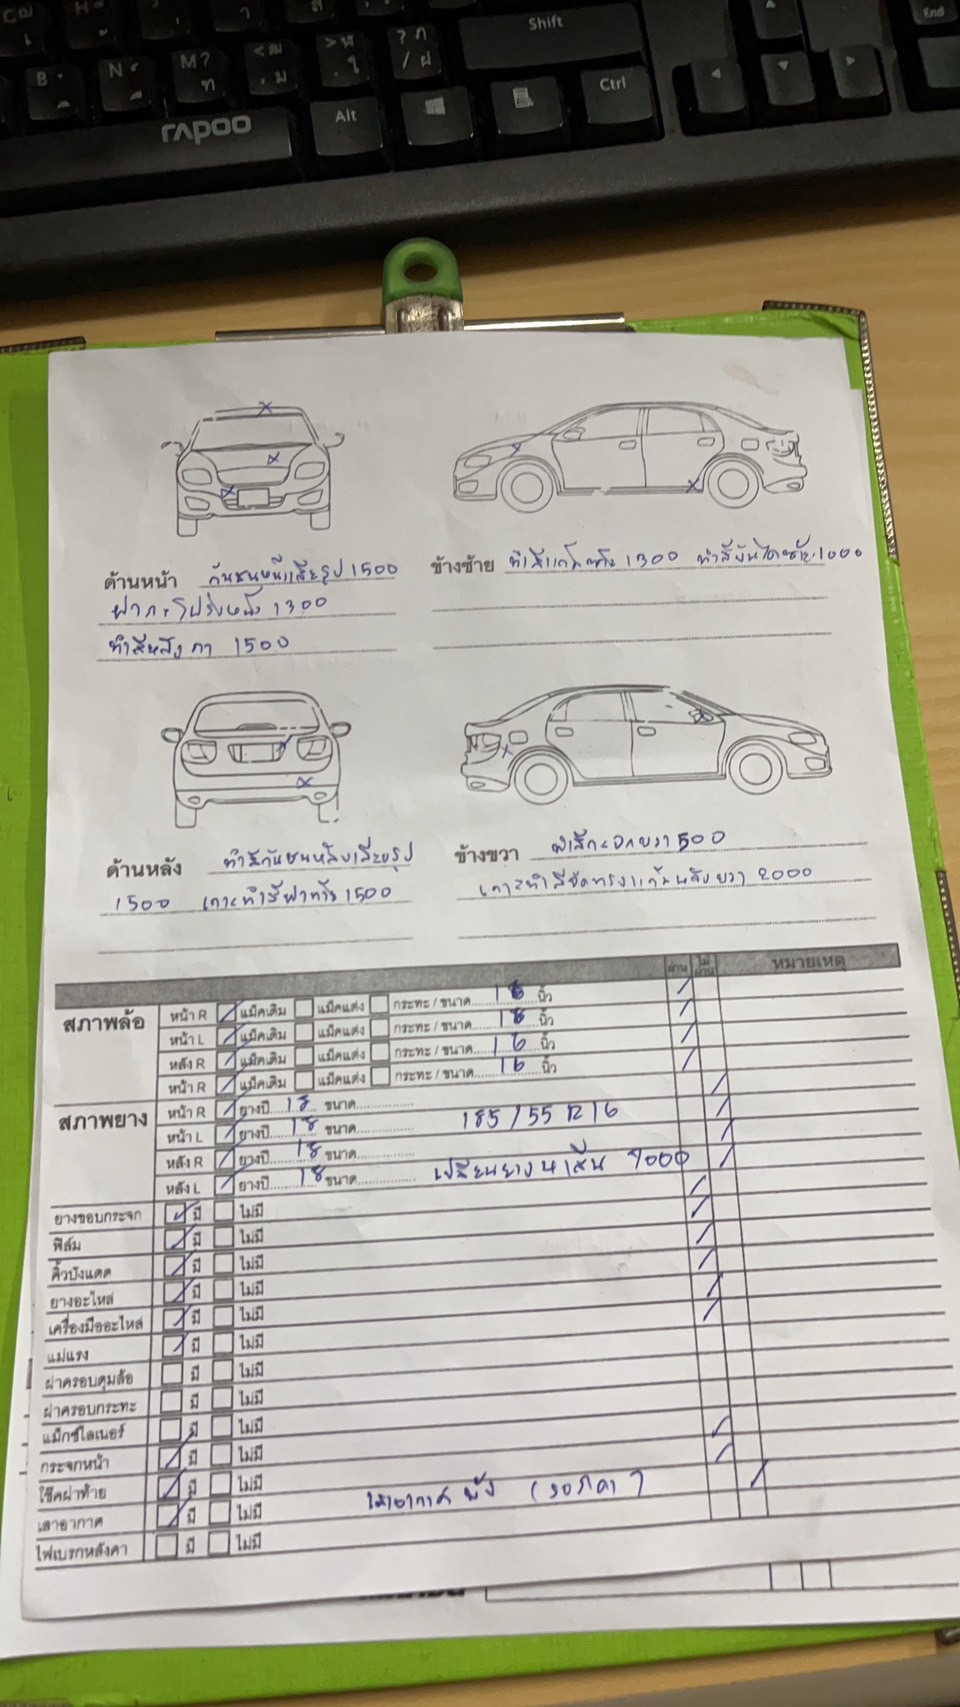 Shift
End
B
N
M ?
ท
< ฒ
, ม
> ฬ
. ใ
? ฦ
/ ฝ
Alt
Ctrl
rapoo
ด้านหน้า กันชนหน้าเสียรูป 1500
ฝากระโปรงหน้า 1300
ทำสีหลังคา 1500
ข้างซ้าย ทำสีแก้มซ้าย 1300 ทำสีบันไดซ้าย 1000
ด้านหลัง ทำสีกันชนหลังเสียรูป
1500 เคาะทำสีฝาท้าย 1500
ข้างขวา ทำสีกระจกขวา 500
เคาะทำสีจัดทรงแก้มหลังขวา 2000
ผ่าน ไม่ผ่าน หมายเหตุ
สภาพล้อ หน้า R แม็คเดิม แม็คแต่ง กระทะ / ขนาด 16 นิ้ว
หน้า L แม็คเดิม แม็คแต่ง กระทะ / ขนาด 16 นิ้ว
หลัง R แม็คเดิม แม็คแต่ง กระทะ / ขนาด 16 นิ้ว
หน้า R แม็คเดิม แม็คแต่ง กระทะ / ขนาด 16 นิ้ว
สภาพยาง หน้า R ยางปี 18 ขนาด
หน้า L ยางปี 18 ขนาด 185/55 R16
หลัง R ยางปี 18 ขนาด
หลัง L ยางปี 18 ขนาด เปลี่ยนยาง 4 เส้น 7000
ยางขอบกระจก มี ไม่มี
ฟิล์ม มี ไม่มี
คิ้วบังแดด มี ไม่มี
ยางอะไหล่ มี ไม่มี
เครื่องมืออะไหล่ มี ไม่มี
แม่แรง มี ไม่มี
ฝาครอบดุมล้อ มี ไม่มี
ฝาครอบกระทะ มี ไม่มี
แม็กซ์ไลเนอร์ มี ไม่มี
กระจกหน้า มี ไม่มี
โช๊คฝาท้าย มี ไม่มี
เสาอากาศ มี ไม่มี เสาอากาศ พัง (รอราคา)
ไฟเบรกหลังคา มี ไม่มี